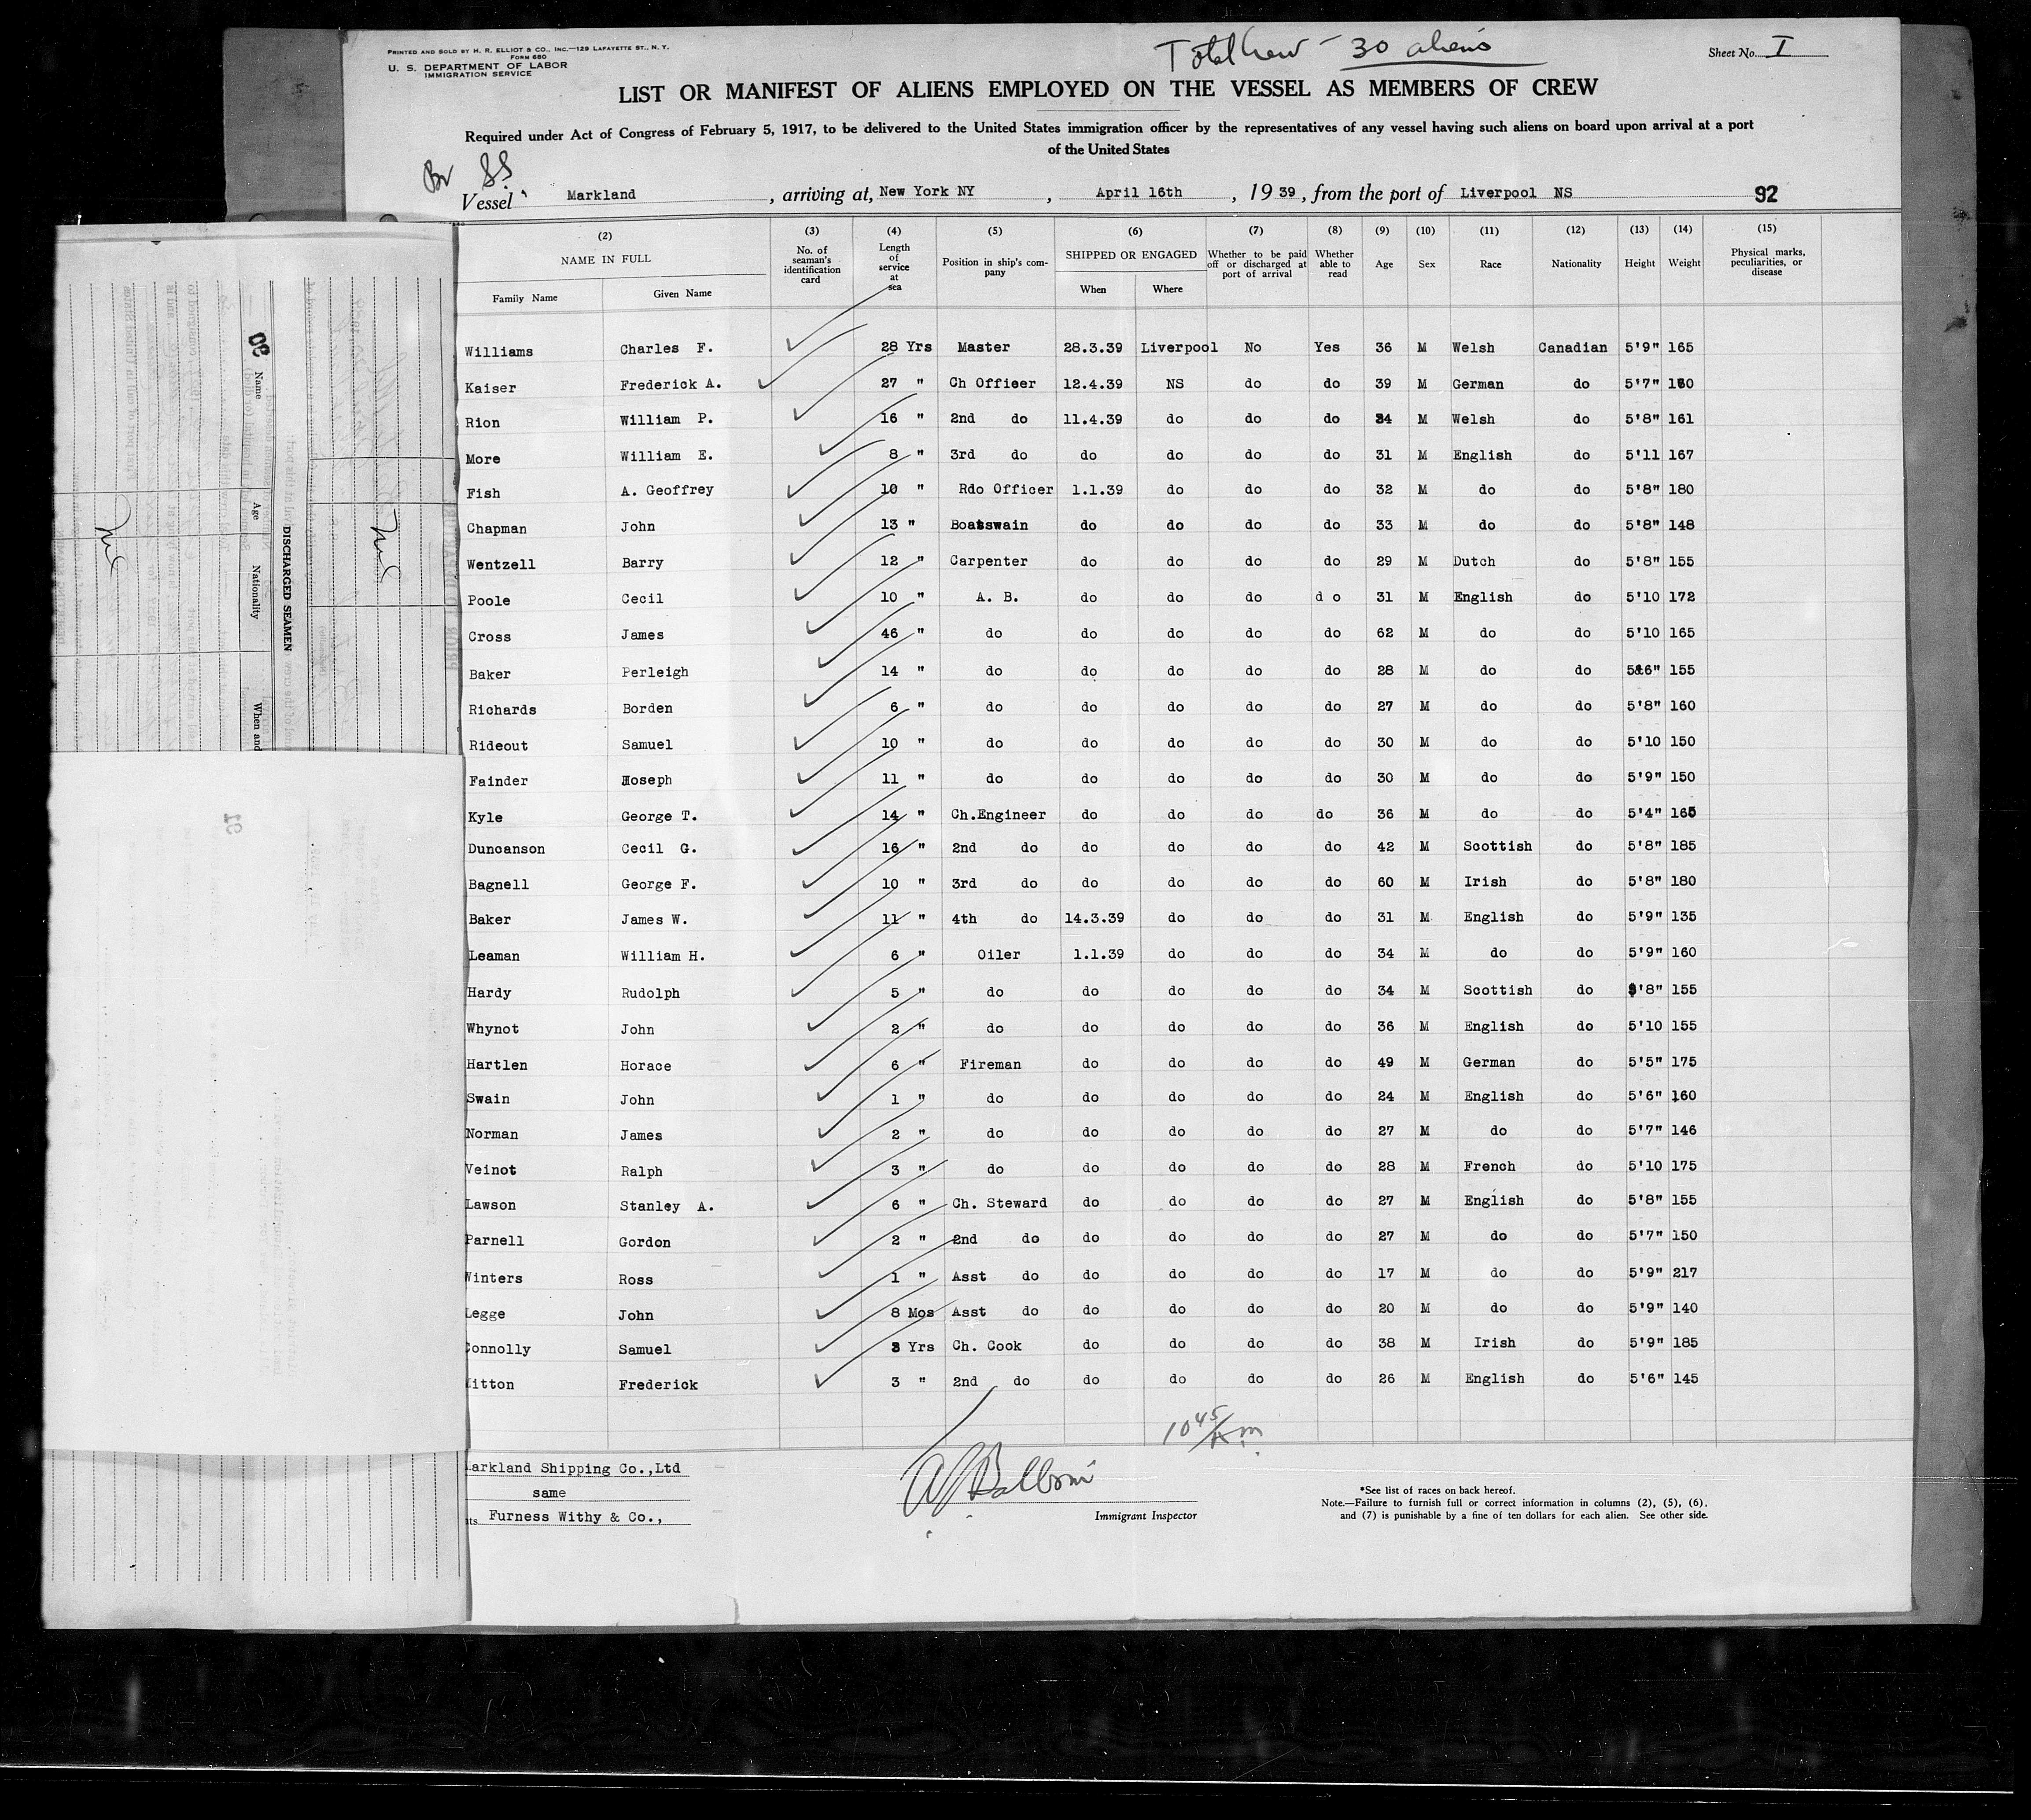 PRINTED AND SOLD BY H. R. ELLIOT & CO., INC.—129 LAFAYETTE ST., N. Y.
FORM 680
U. S. DEPARTMENT OF LABOR
IMMIGRATION SERVICE
Total Crew - 30 aliens
Sheet No. I
LIST OR MANIFEST OF ALIENS EMPLOYED ON THE VESSEL AS MEMBERS OF CREW
Required under Act of Congress of February 5, 1917, to be delivered to the United States immigration officer by the representatives of any vessel having such aliens on board upon arrival at a port
of the United States
Br SS
Vessel Markland, arriving at, New York NY, April 16th, 1939, from the port of Liverpool NS 92
(2) NAME IN FULL Family Name Given Name (3) No. of seaman's identification card (4) Length of service at sea (5) Position in ship's company (6) SHIPPED OR ENGAGED When Where (7) Whether to be paid off or discharged at port of arrival (8) Whether able to read (9) Age (10) Sex (11) Race (12) Nationality (13) Height (14) Weight (15) Physical marks, peculiarities, or disease
Williams Charles F. 28 Yrs Master 28.3.39 Liverpool No Yes 36 M Welsh Canadian 5'9" 165
Kaiser Frederick A. 27 " Ch Officer 12.4.39 NS do do 39 M German do 5'7" 160
Rion William P. 16 " 2nd do 11.4.39 do do do 34 M Welsh do 5'8" 161
More William E. 8 " 3rd do do do do do 31 M English do 5'11 167
Fish A. Geoffrey 10 " Rdo Officer 1.1.39 do do do 32 M do do 5'8" 180
Chapman John 13 " Boatswain do do do do 33 M do do 5'8" 148
Wentzell Barry 12 " Carpenter do do do do 29 M Dutch do 5'8" 155
Poole Cecil 10 " A. B. do do do d o 31 M English do 5'10 172
Cross James 46 " do do do do do 62 M do do 5'10 165
Baker Perleigh 14 " do do do do do 28 M do do 5&6" 155
Richards Borden 6 " do do do do do 27 M do do 5'8" 160
Rideout Samuel 10 " do do do do do 30 M do do 5'10 150
Fainder Joseph 11 " do do do do do 30 M do do 5'9" 150
Kyle George T. 14 " Ch.Engineer do do do do 36 M do do 5'4" 165
Duncanson Cecil G. 16 " 2nd do do do do do 42 M Scottish do 5'8" 185
Bagnell George F. 10 " 3rd do do do do do 60 M Irish do 5'8" 180
Baker James W. 11 " 4th do 14.3.39 do do do 31 M English do 5'9" 135
Leaman William H. 6 " Oiler 1.1.39 do do do 34 M do do 5'9" 160
Hardy Rudolph 5 " do do do do do 34 M Scottish do 5'8" 155
Whynot John 2 " do do do do do 36 M English do 5'10 155
Hartlen Horace 6 " Fireman do do do do 49 M German do 5'5" 175
Swain John 1 " do do do do do 24 M English do 5'6" 160
Norman James 2 " do do do do do 27 M do do 5'7" 146
Veinot Ralph 3 " do do do do do 28 M French do 5'10 175
Lawson Stanley A. 6 " Ch. Steward do do do do 27 M English do 5'8" 155
Parnell Gordon 2 " 2nd do do do do do 27 M do do 5'7" 150
Winters Ross 1 " Asst do do do do do 17 M do do 5'9" 217
Legge John 8 Mos Asst do do do do do 20 M do do 5'9" 140
Connolly Samuel 3 Yrs Ch. Cook do do do do 38 M Irish do 5'9" 185
itton Frederick 3 " 2nd do do do do do 26 M English do 5'6" 145
10 45/Am
arkland Shipping Co.,Ltd
same
ts Furness Withy & Co.,
Immigrant Inspector
*See list of races on back hereof.
Note.—Failure to furnish full or correct information in columns (2), (5), (6).
and (7) is punishable by a fine of ten dollars for each alien. See other side.
DISCHARGED SEAMEN
Name Age Nationality When and